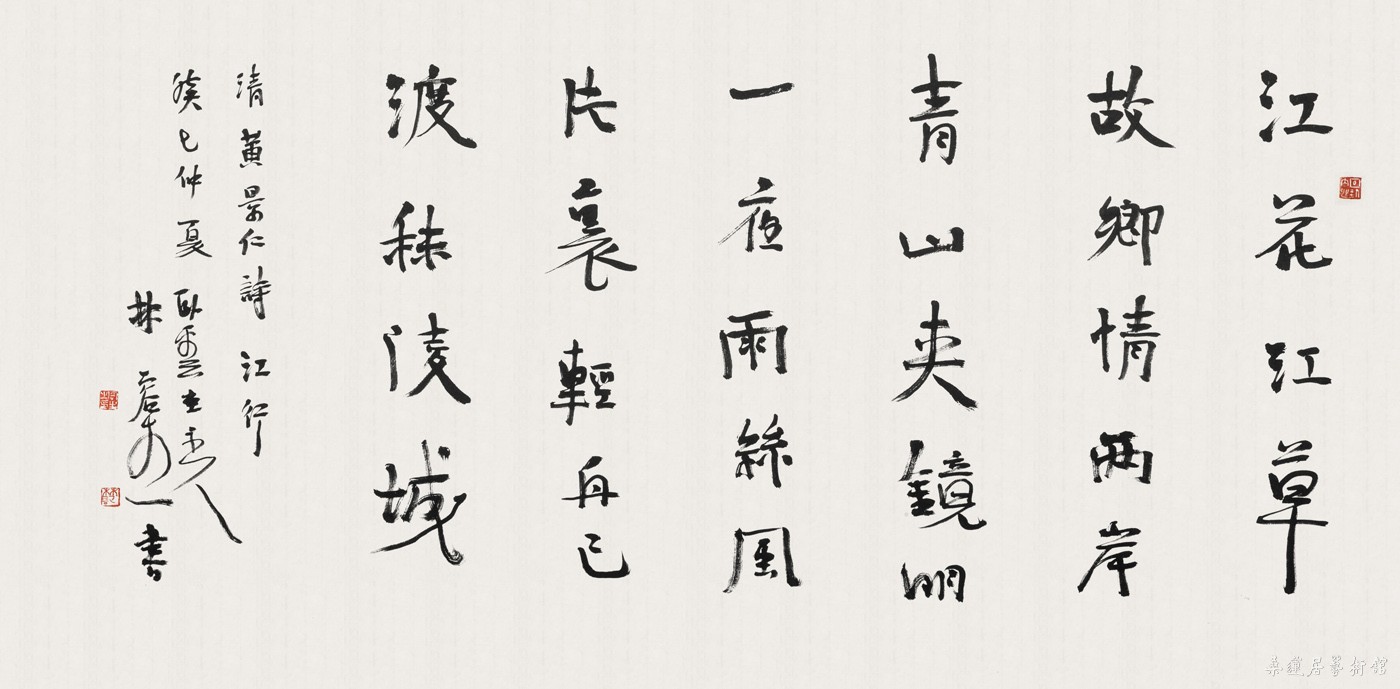 江花江草
故鄉情兩岸
青山夾鏡明
一夜雨絲風
片裏輕舟已
渡秣陵城
清黃景仁詩江行
癸巳仲夏臥
林書
桑蓮居藝術館